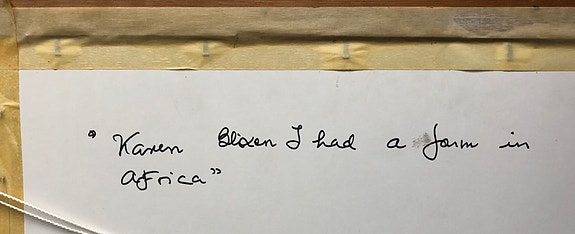 " Karen Blixen I had a farm in
Africa"